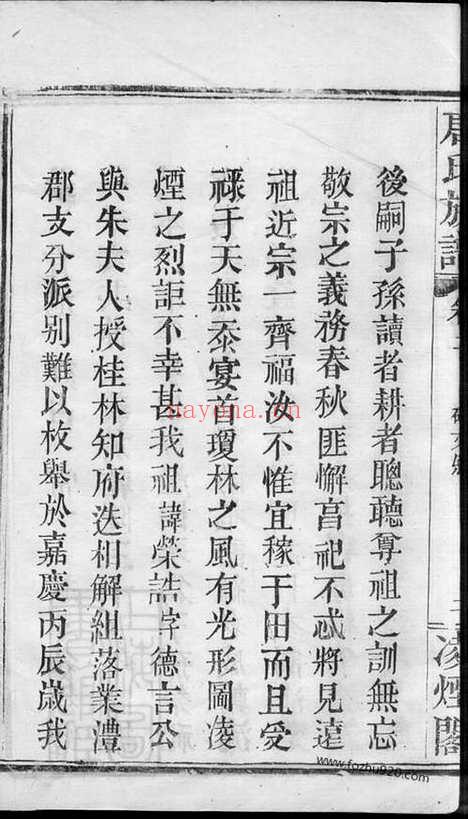 後嗣子孫讀者耕者聰聽尊祖之訓無忘
敬宗之義務春秋匪懈享祀不忒將見遠
祖近宗一齊福汝不惟宜稼于田而且受
祿于天無忝宴首瓊林之風有光形圖凌
煙之烈詎不幸甚我祖諱榮誥字德言公
與朱夫人授桂林知府迭相解組落業澧
郡支分派别難以枚舉於嘉慶丙辰歲我
氏族譜
凌煙閣
nayona.cn
www.fozhu920.com